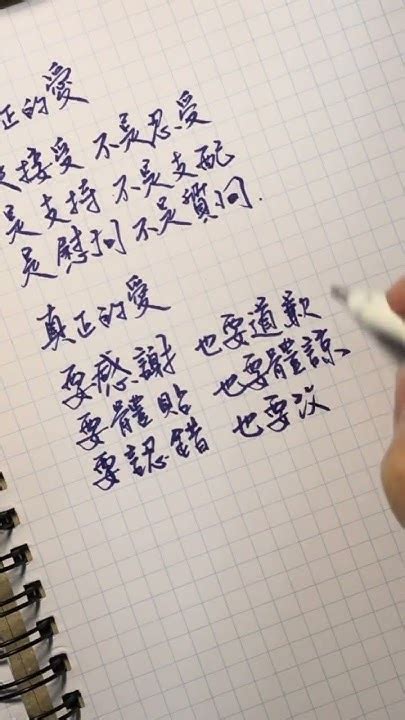 正的愛
接受 不是忍受
是支持 不是支配
是慰问 不是質问.
真正的愛
要感謝 也要道歉
要體貼 也要體諒
要認錯 也要改